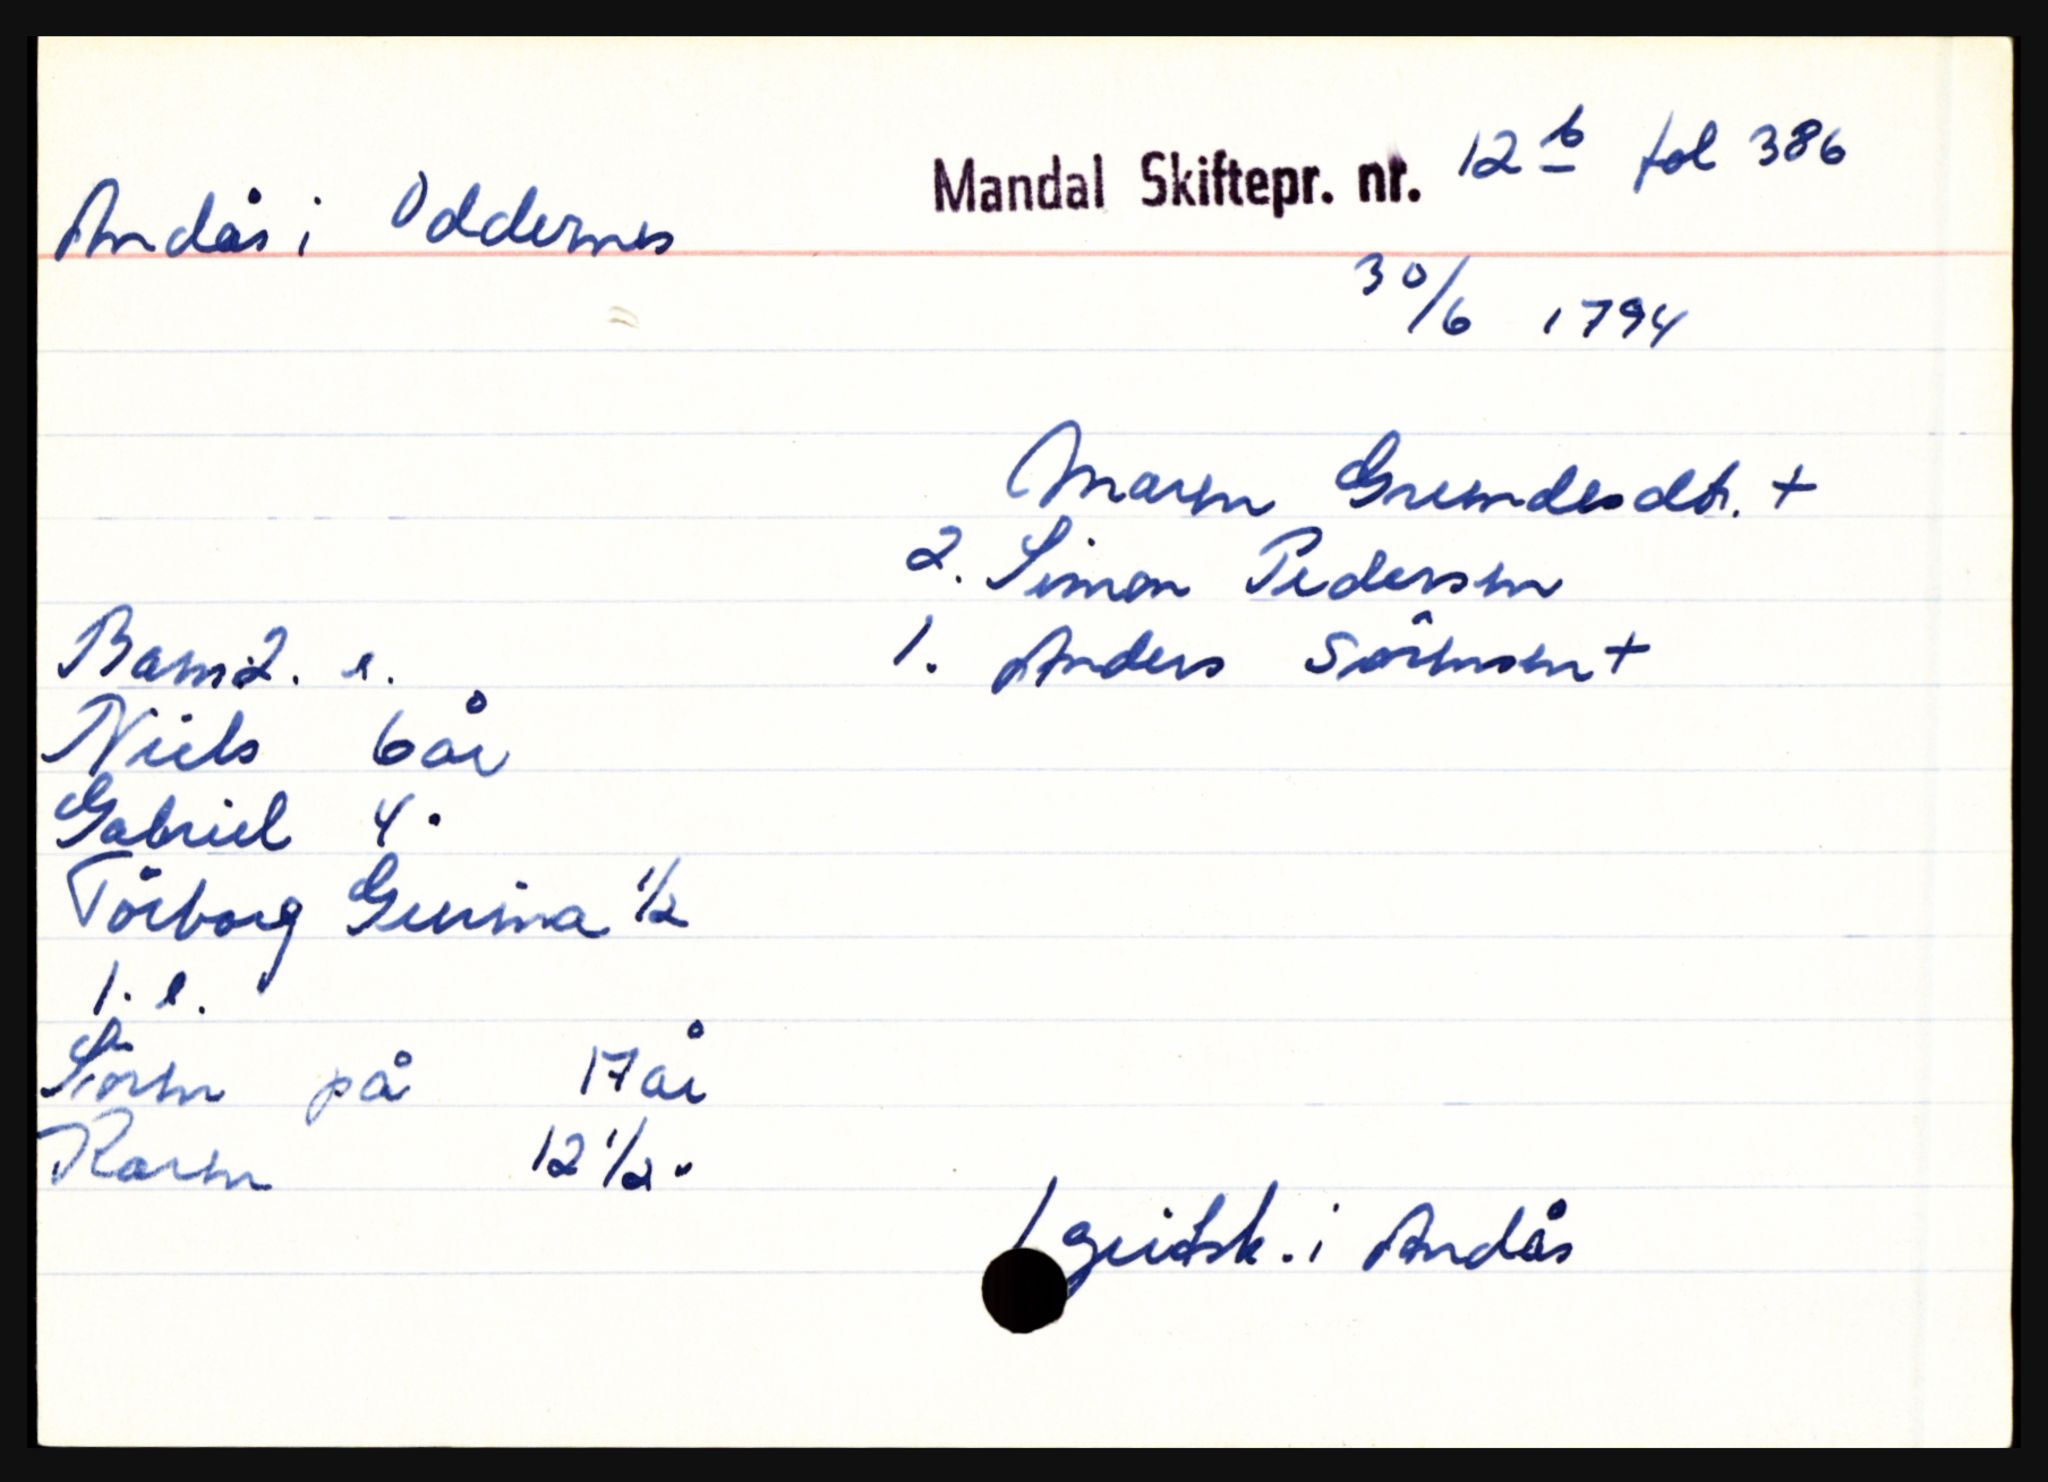 Mandal Skiftepr. nr. 12 b fol 386
Andås i Oddernes
30/6 1794
Maren Gundesdtr. +
2. Simon Pedersen
1. Anders Sörensen +
Barn i 2. e.
Niels 6 år
Gabriel 4 "
Törborg Gurina 1/2
1. e.
Sören på 17 år
Karen 12 1/2 "
1 i Andås